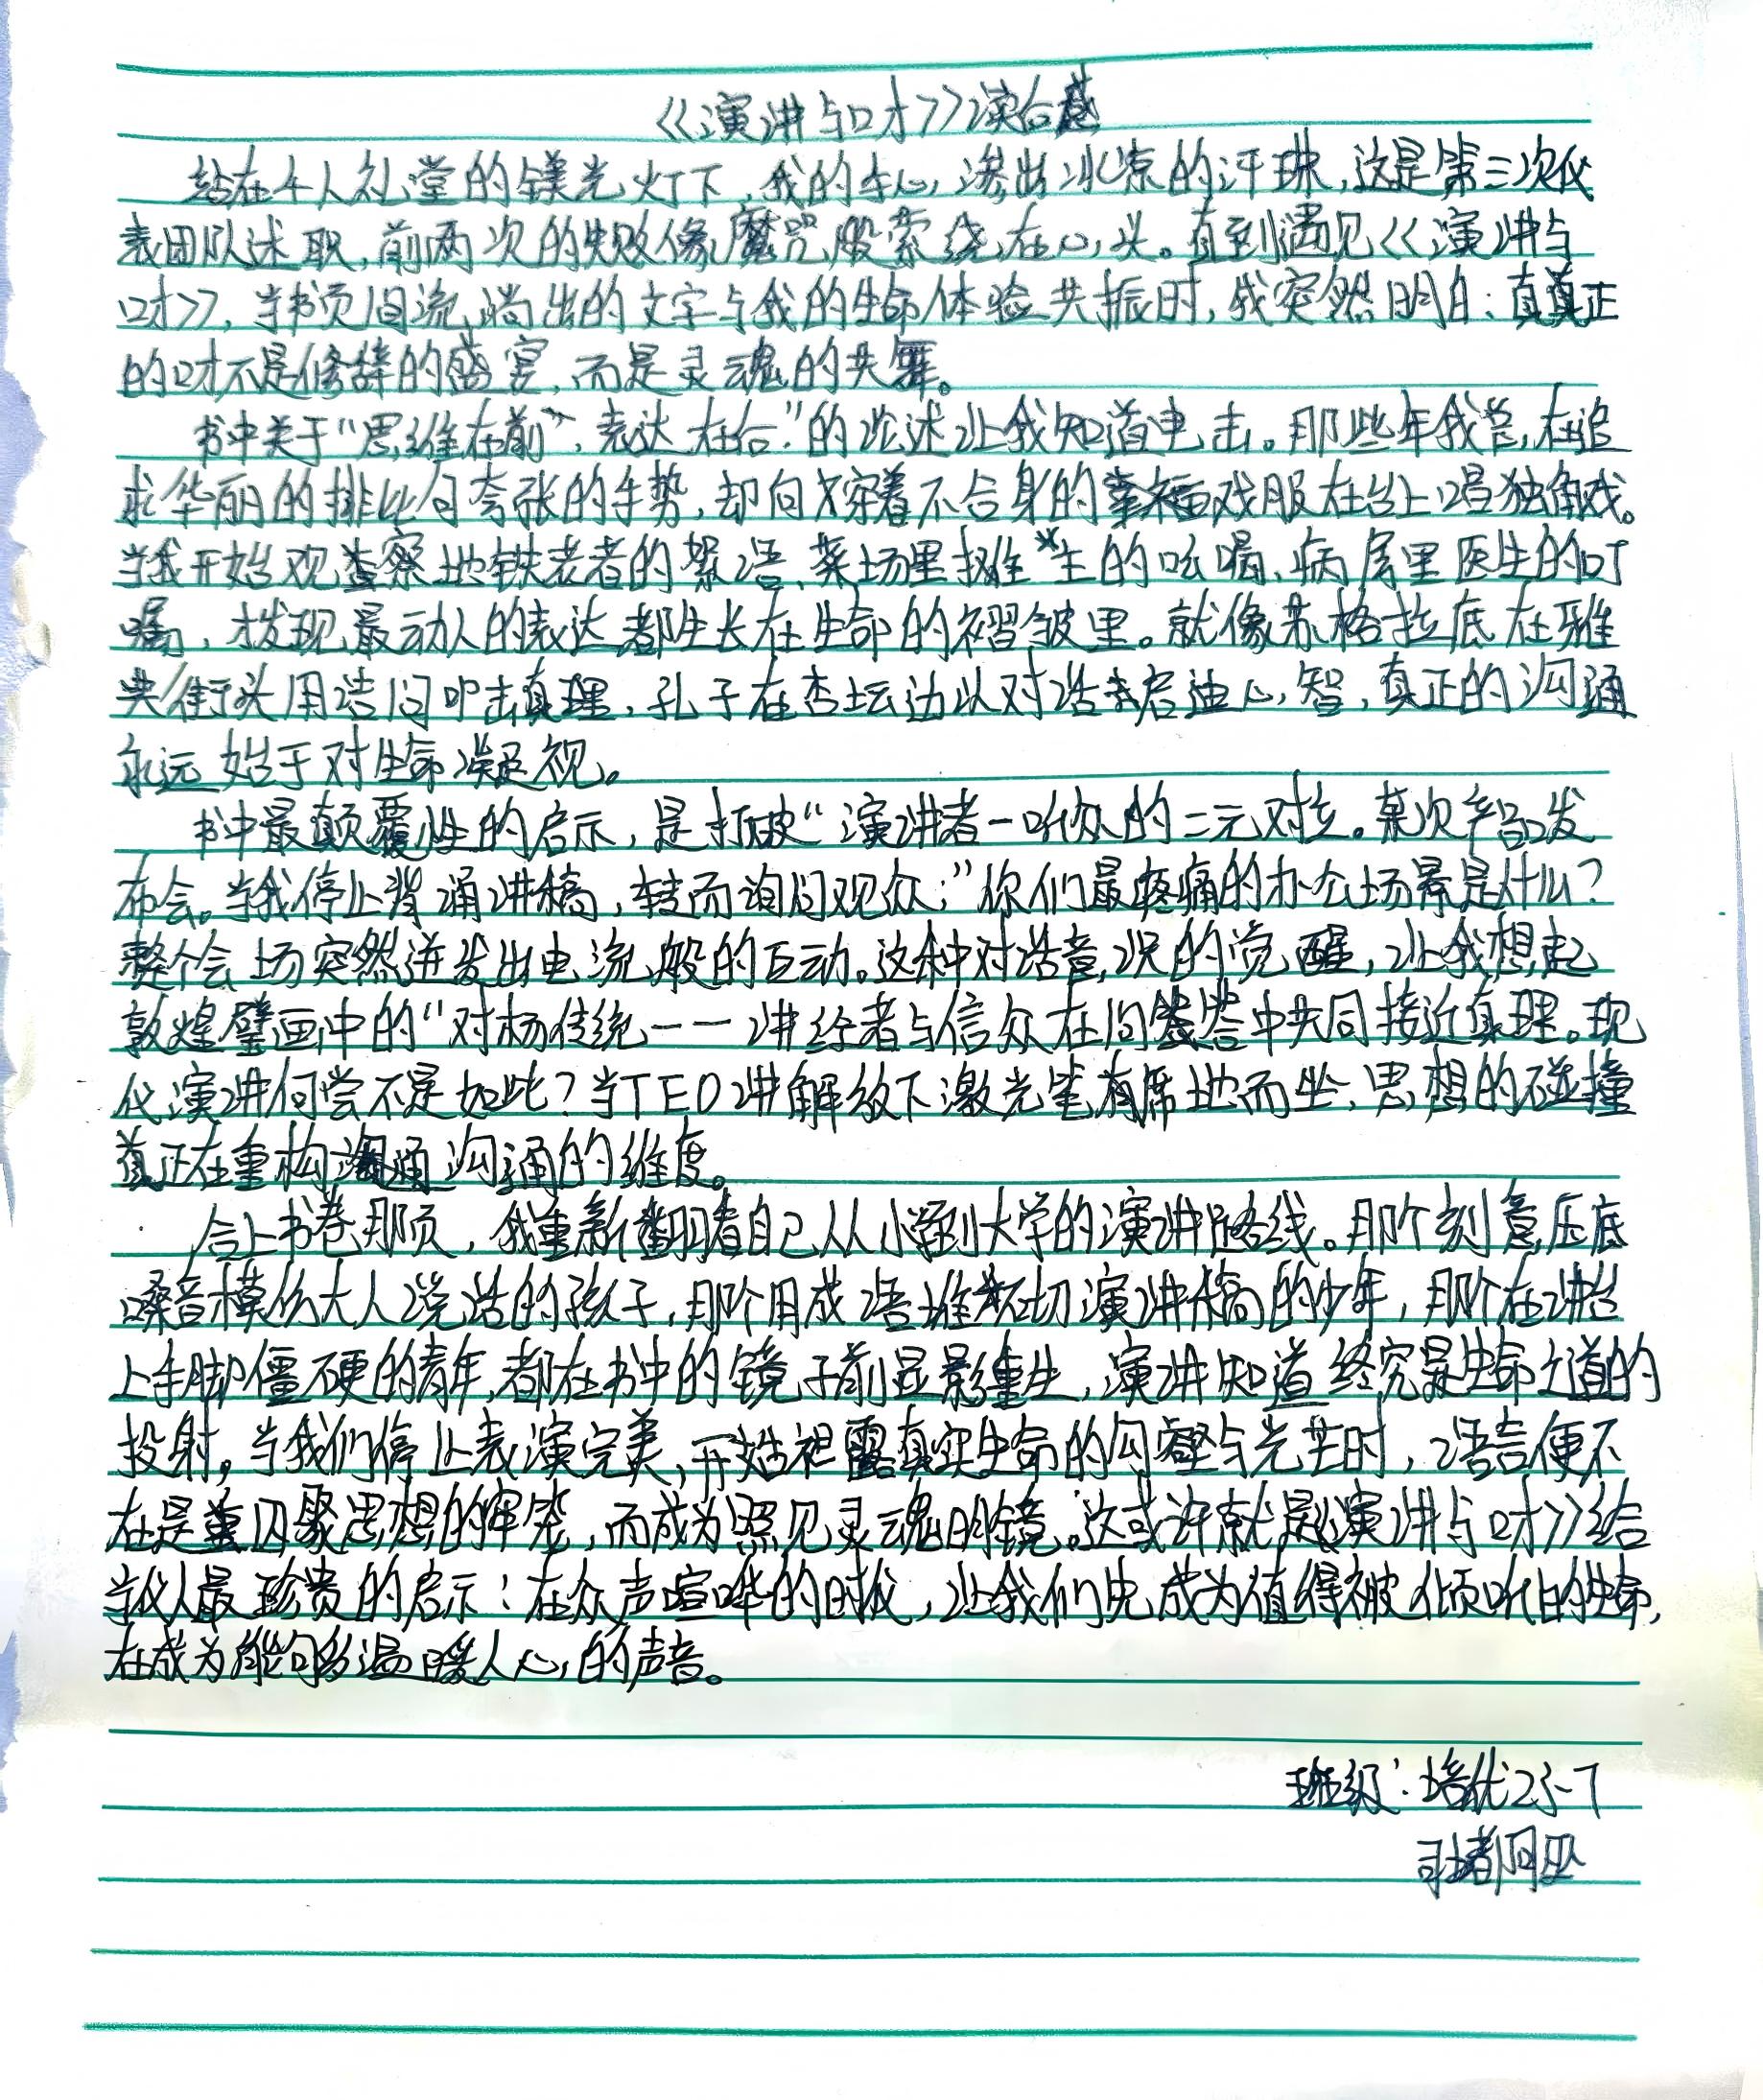 《演讲与口才》读后感
站在千人礼堂的镁光灯下，我的手心渗出冰凉的汗珠，这是第三次代
表团队述职，前两次的失败像魔咒般萦绕在心头。直到遇见《演讲与
口才》，当书页间流淌出的文字与我的生命体验共振时，我突然明白：真真正
的口才不是修辞的盛宴，而是灵魂的共舞。
书中关于“思维在前”，表达在后”的论述让我知道电击。那些年我总在追
求华丽的排比句夸张的手势，却向才穿着不合身的戏服在台上唱独角戏。
当我开始观察地铁老者的絮语、菜场里摊生的吆喝、病房里医生的叮
嘱，才发现最动人的表达都生长在生命的褶皱里。就像苏格拉底在雅
典街头用诘问叩击真理，孔子在杏坛边以对话启迪心智，真正的沟通
永远始于对生命凝视。
书中最颠覆性的启示，是打破“演讲者一听众的二元对立。某次产品发
布会。当我停止背诵讲稿，转而询问观众：”你们最疼痛的办公场景是什么？
整个会场突然迸发出电流般的互动。这种对话意识的觉醒，让我想起
敦煌壁画中的“对扬传统——讲经者与信众在问答中共同接近真理。现
代演讲何尝不是如此？当TED讲解放下激光笔席地而坐，思想的碰撞
真正在重构沟通的维度。
合上书卷那页，我重新翻看自己从小学到大学的演讲路线。那个刻意压底
嗓音模仿大人说话的孩子，那个用成语堆砌演讲稿的少年，那个在讲台
上手脚僵硬的青年，都在书中的镜子前显影重生，演讲知道终究是生命之道的
投射。当我们停止表演完美，开始袒露真实生命的沟壑与光芒时，语言便不
在是囚聚思想的牢笼，而成为照见灵魂明镜。这或许就是《演讲与口才》给
当代人最珍贵的启示：在众声喧哗的时代，让我们先成为值得被倾听的生命，
在成为能够温暖人心的声音。
班级：培优23-7